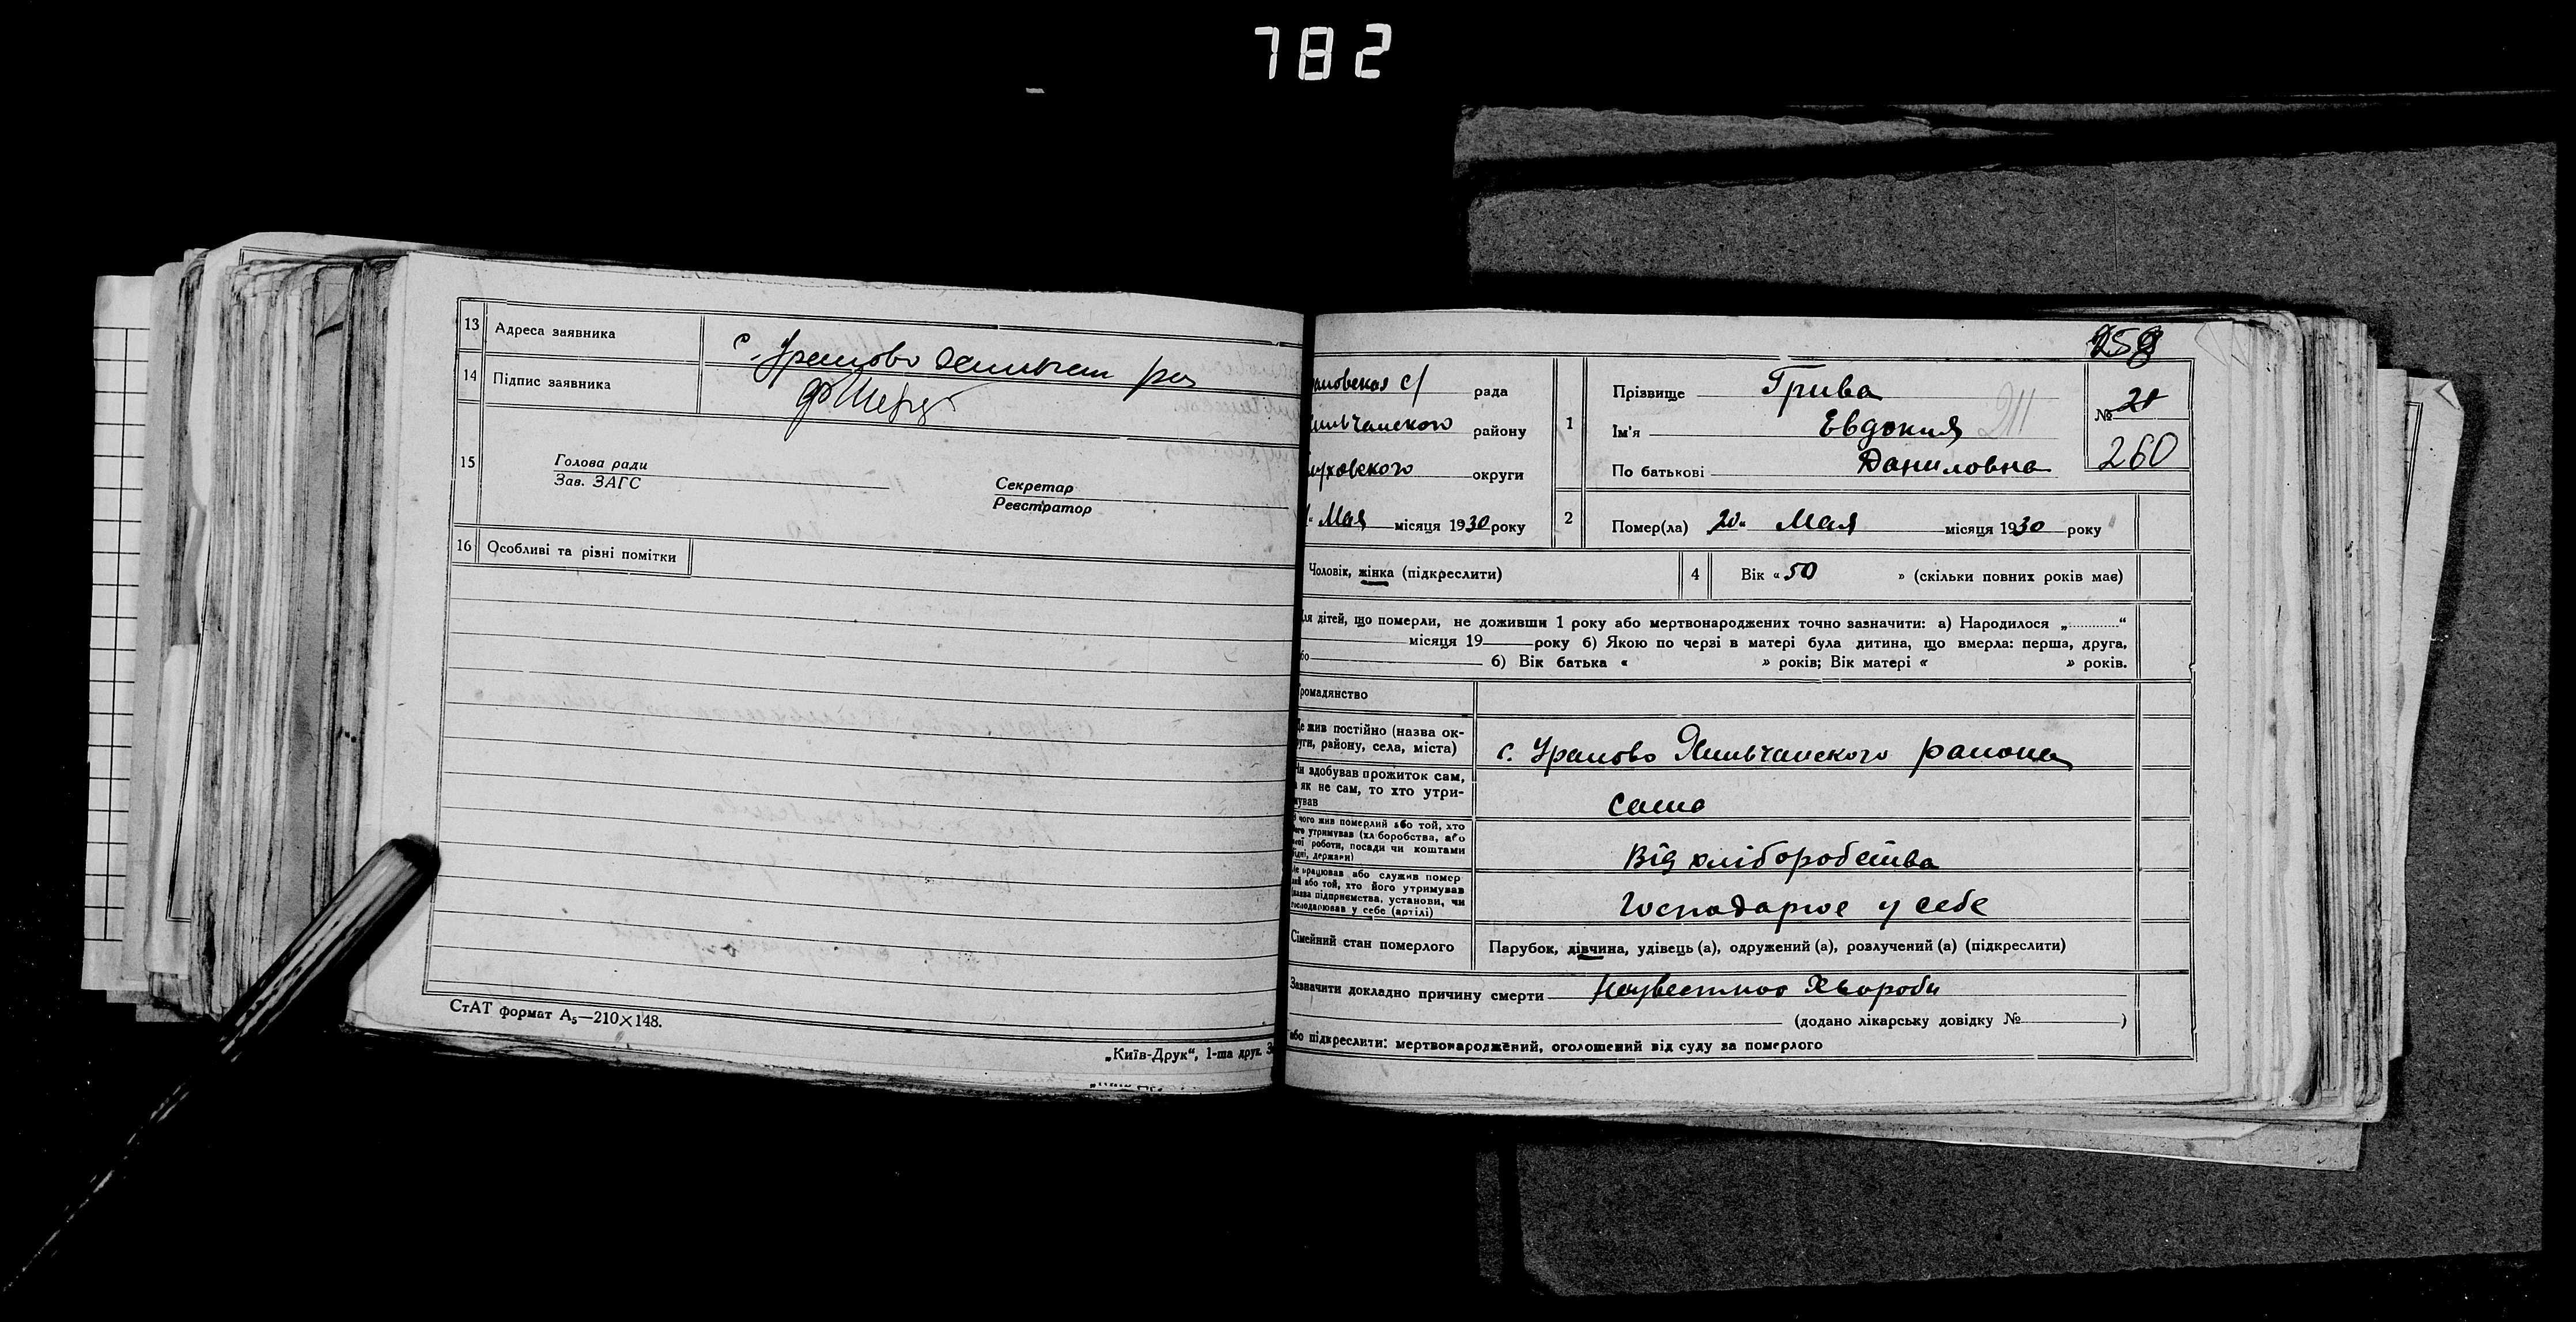 782
13 Адреса заявника с. Урамово
14 Підпис заявника
15 Голова ради
Зав. ЗАГС
Секретар
Реєстратор
16 Особливі та різні помітки
СтАТ формат А5—210×148.
„Київ-Друк“, 1-ша друк.
259
рада
району
уховского округи
Мая місяця 1930 року
1 Прізвище Грива
Ім'я Евдокия
По батькові Даниловна
№ 21
260
2 Помер(ла) 20 Мая місяця 1930 року
Чоловік, жінка (підкреслити)
4 Вік «50 » (скільки повних років має)
ля дітей, що померли, не доживши 1 року або мертвонароджених точно зазначити: а) Народилося „ “
місяця 19 року б) Якою по черзі в матері була дитина, що вмерла: перша, друга,
бо б) Вік батька « » років; Вік матері « » років.
ромадянство
е жив постійно (назва ок-
руги, району, села, міста) с. Урамово Хильчанского района
и здобував прожиток сам,
як не сам, то хто утри-
мував сама
чого жив померлий або той, хто
його утримував (хліборобства, або
роботи, посади чи коштами
держави) Від хліборобства
е працював або служив помер
або той, хто його утримував
підприємства, установи, чи
господарював у себе (артілі) Господарює у себе
Сімейний стан померлого Парубок, дівчина, удівець (а), одружений (а), розлучений (а) (підкреслити)
Зазначити докладно причину смерти Неизвестно Хвороби
(додано лікарську довідку № )
або підкреслити: мертвонароджений, оголошений від суду за померлого